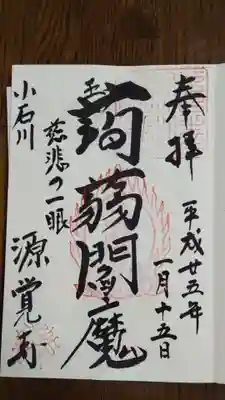 奉拝
平成廿五年
一月十五日
蒟蒻閻魔
慈悲の一眼
小石川
源覚寺